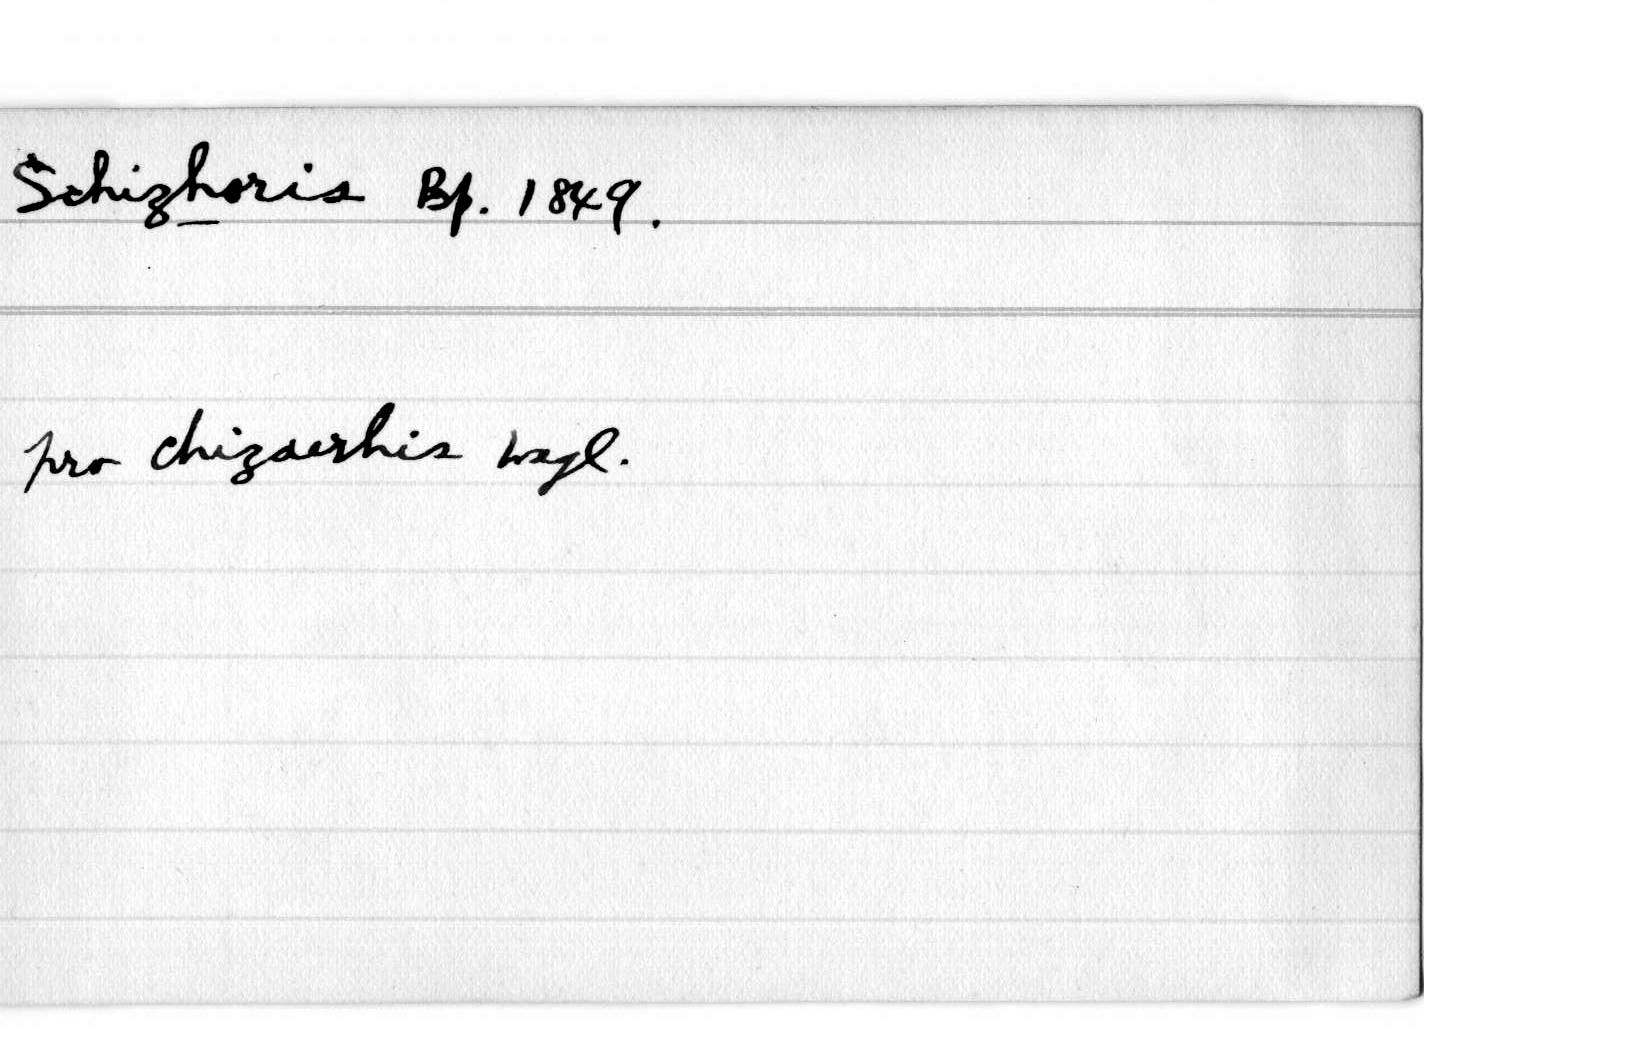 Schizhoris Bp. 1849.
pro chizaerhis wagl.